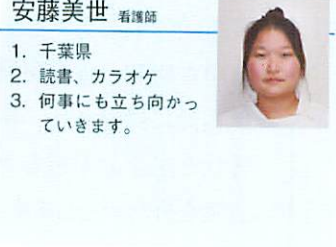 安藤美世 看護師
1. 千葉県
2. 読書、カラオケ
3. 何事にも立ち向かっ
ていきます。